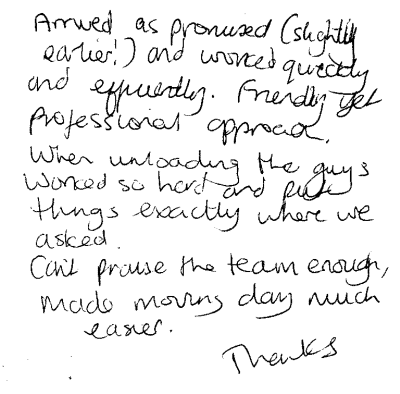 Arrived as promised (slightly
earlier!) and worked quickly
and efficiently. Friendly yet
professional approach.
When unloading the guys
worked so hard and put
things exactly where we
asked.
Can't praise the team enough,
made moving day much
easier.
Thanks